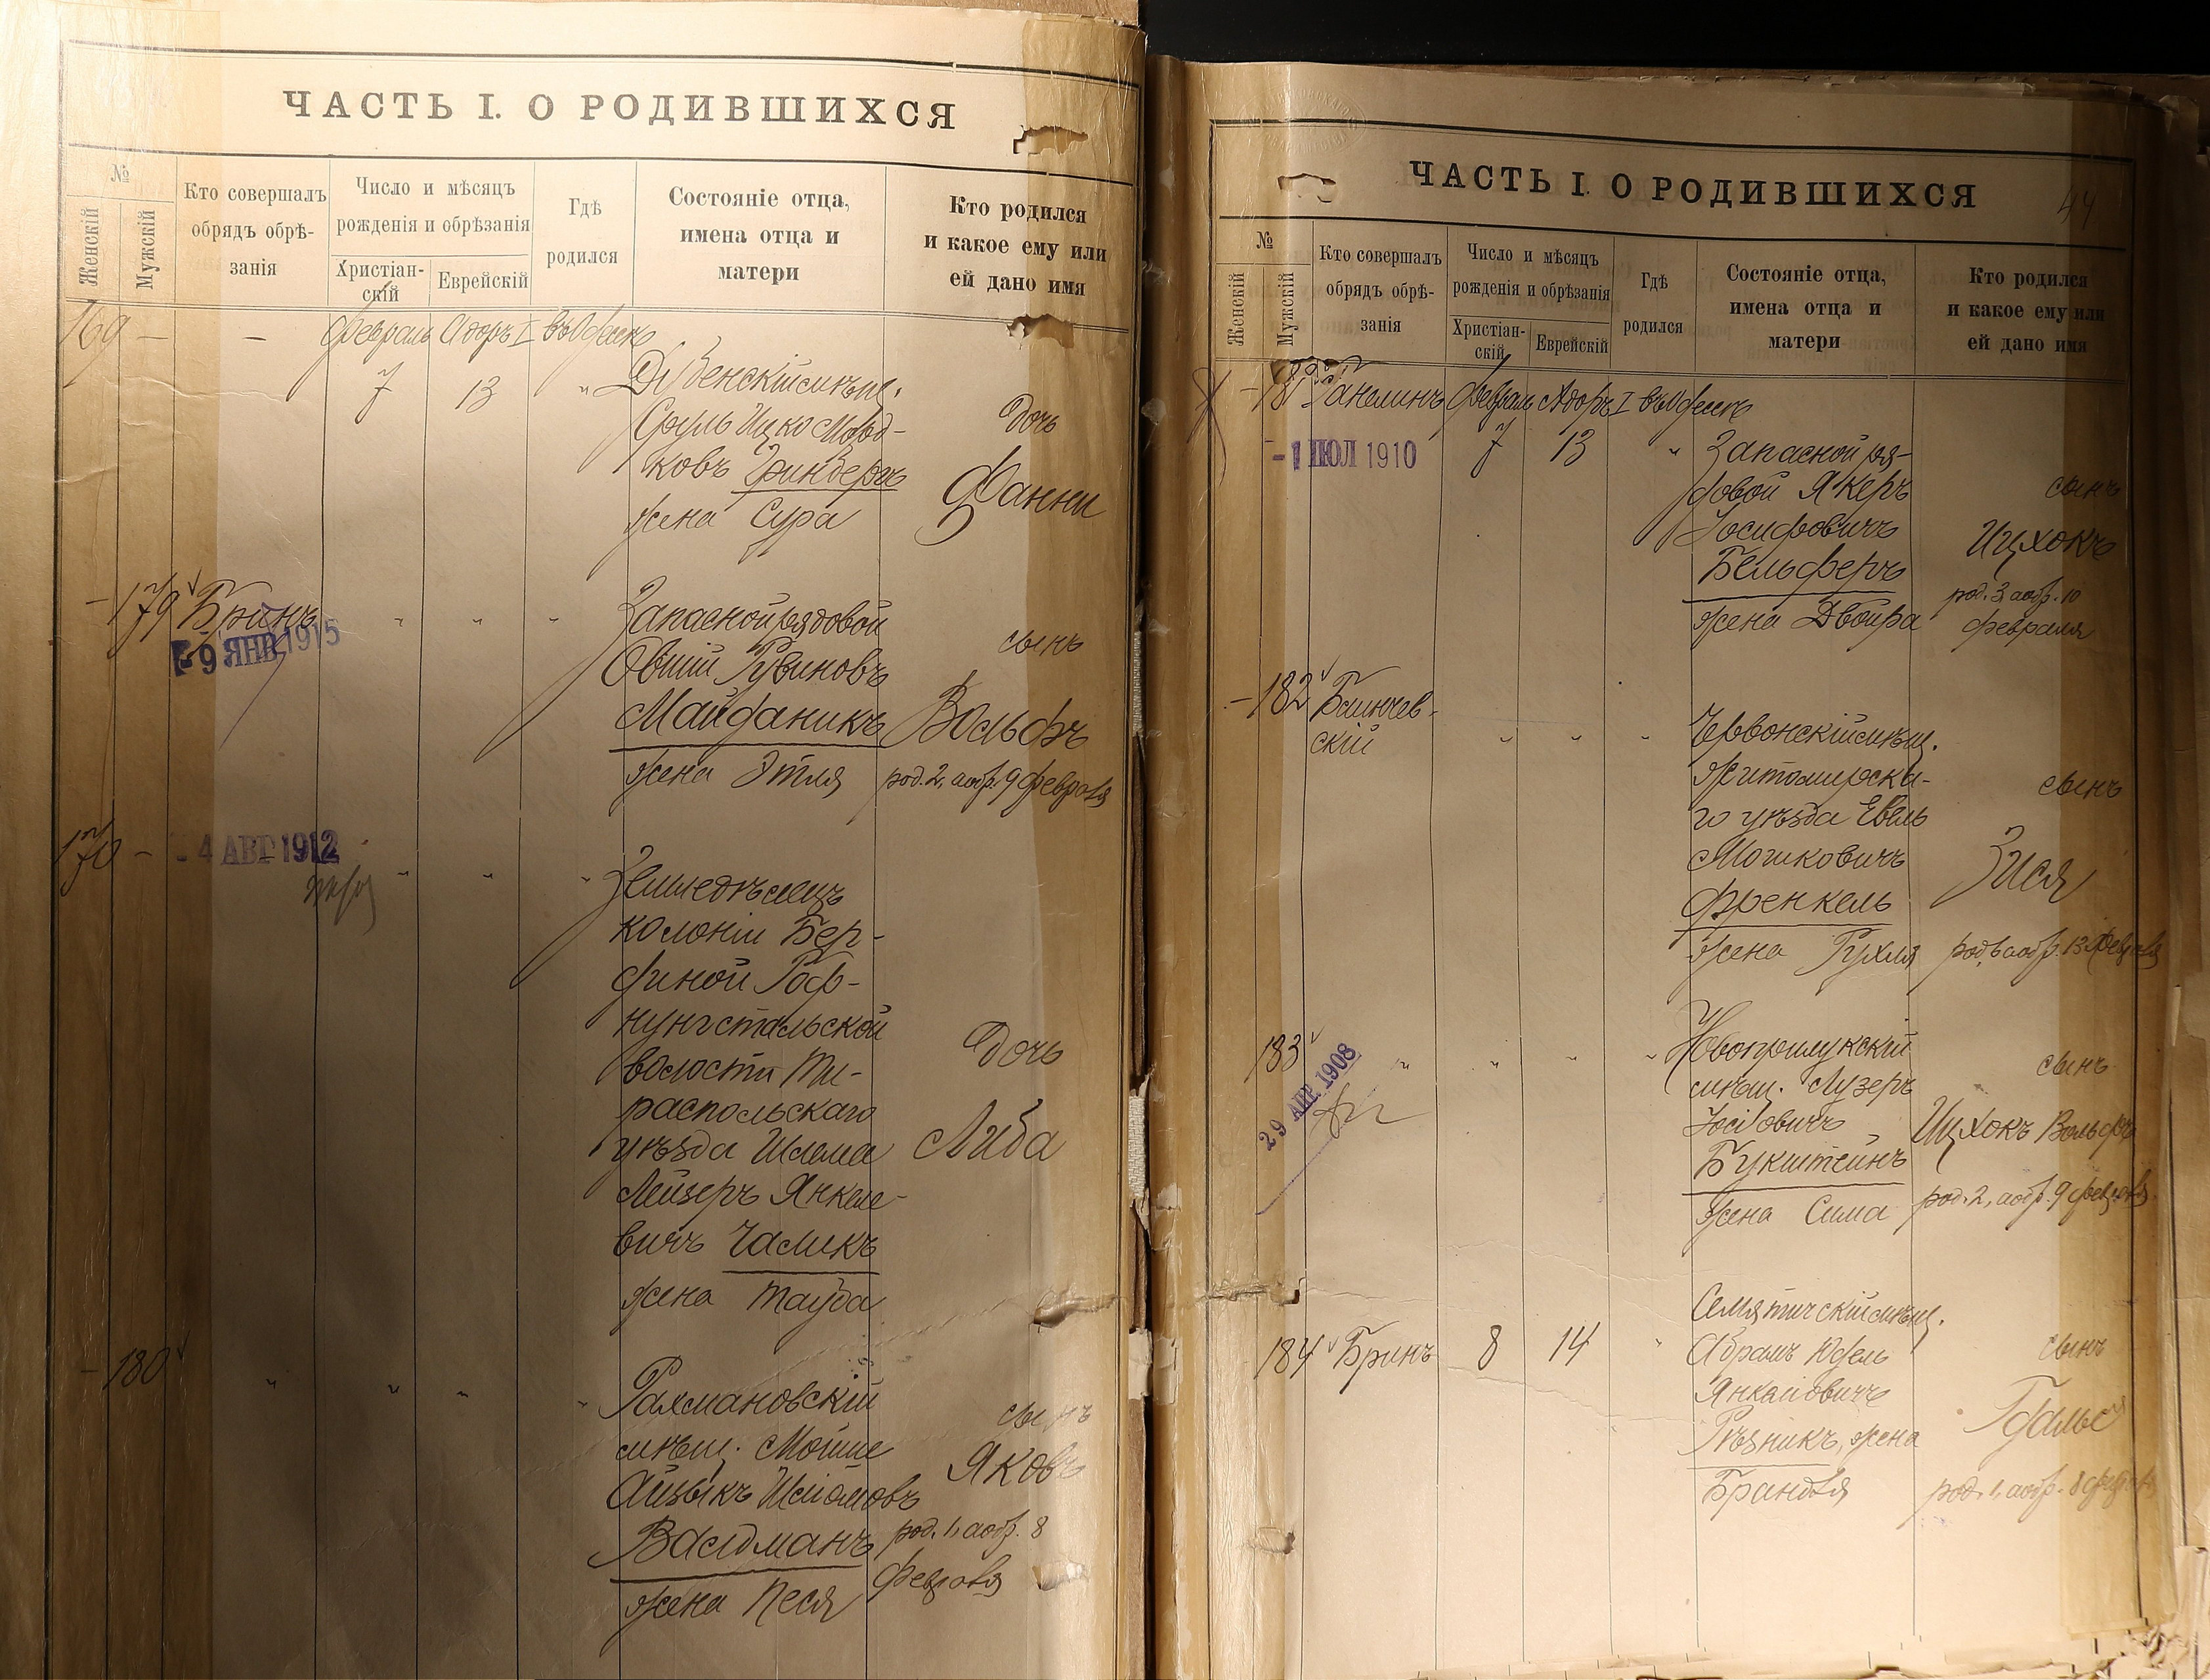 ЧАСТЬ I. О РОДИВШИХСЯ
№
Женскій
Мужскій
Кто совершалъ
обрядъ обрѣ-
занія
Число и мѣсяцъ
рожденія и обрѣзанія
Христіан-
скій
Еврейскій
Гдѣ
родился
Состояніе отца,
имена отца и
матери
Кто родился
и какое ему или
ей дано имя
169 — — Февраль Адоръ I въ Одессѣ
7 13 " Дубенскій мѣщ.
Сруль Ицко Морд-
ковъ Гринбергъ
жена Сура
дочь
Фанни
— 179 Бринъ " " "
- 9 ЯНВ 1915
Запасной рядовой
Овшій Рувиновъ
Майданикъ
жена Этля
сынъ
Вольфъ
род. 2, а обр. 9 февраля
170 —
4 АВГ 1912
" " "
Земледѣлецъ
колоніи Бер-
диной Гоф-
нунгстальской
волости Ти-
распольскаго
уѣзда Шлема
Лейзеръ Янкеле-
вичъ Чаликъ
жена Тауба
дочь
Либа
— 180 " " " "
Рахмановскій
мѣщ. Мойше
Айзыкъ Шліомовъ
Валдманъ
жена Песя
сынъ
Яковъ
род. 1, а обр. 8
февраля
ЧАСТЬ I. О РОДИВШИХСЯ
44
№
Женскій
Мужскій
Кто совершалъ
обрядъ обрѣ-
занія
Число и мѣсяцъ
рожденія и обрѣзанія
Христіан-
скій
Еврейскій
Гдѣ
родился
Состояніе отца,
имена отца и
матери
Кто родился
и какое ему или
ей дано имя
— 181 Ганелинъ Февраль Адоръ I въ Одессѣ
- 1 ИЮЛ 1910
7 13 "
Запасной ря-
довой Янкеръ
Іосифовичъ
Бельферъ
жена Двойра
сынъ
Ицхокъ
род. 3, а обр. 10
февраля
— 182 Баинчев-
скій
" " "
Червонскій мѣщ.
Житомирска-
го уѣзда Евель
Мошковичъ
Френкель
жена Рухля
сынъ
Зися
род. 6 а обр. 13 февраля
183 " " " "
29 АПР 1908
Новоприлукскій
мѣщ. Лузеръ
Іосіовичъ
Букштейнъ
жена Сима
сынъ
Ицхокъ Вольфъ
род. 2, а обр. 9 февраля.
184 Бринъ 8 14 "
Семятичскій мѣщ.
Абрамъ Юдель
Янкеловичъ
Рѣзникъ, жена
Брандля
сынъ
Гдалье
род. 1, а обр. 8 февраля